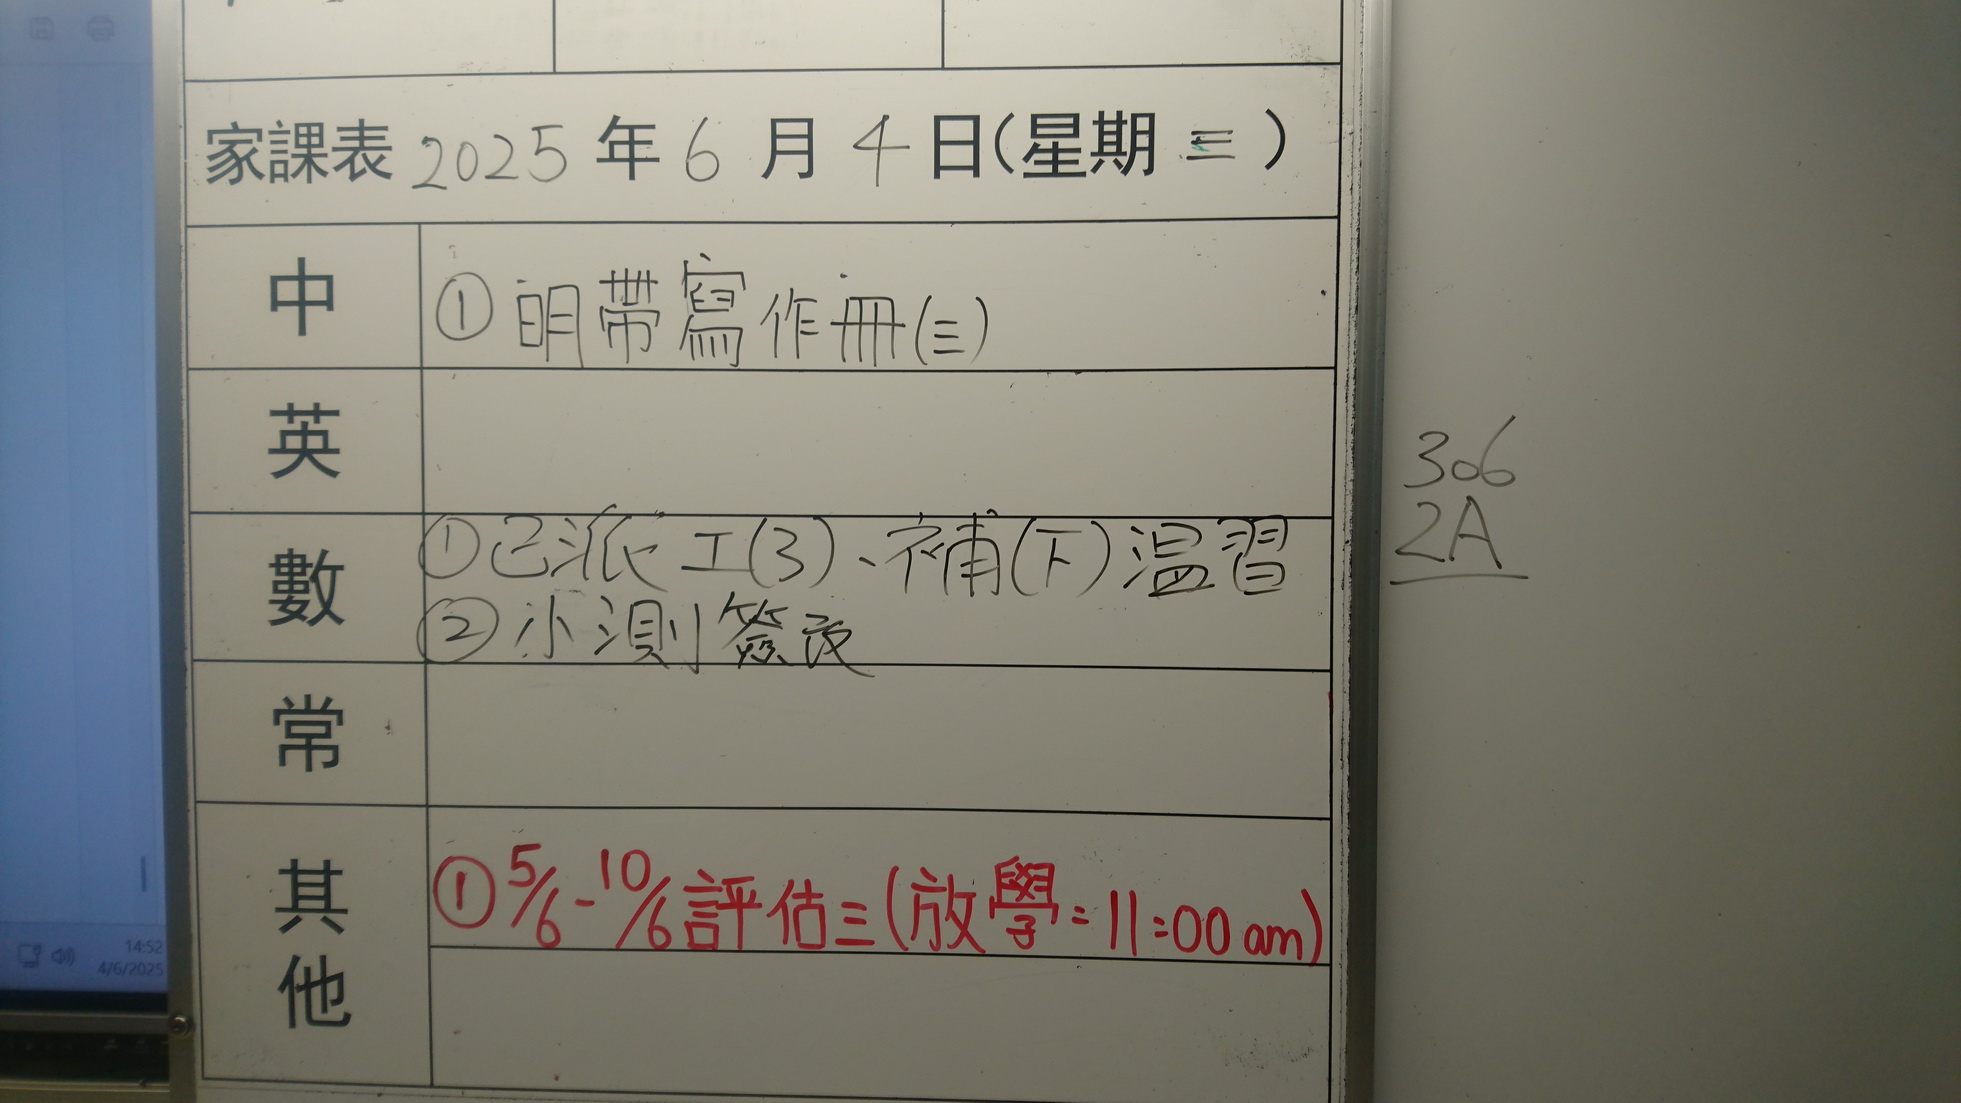 家課表 2025 年 6 月 4 日(星期 三)
中
① 明帶寫作冊(三)
英
數
① 已派工(3)、補(下)温習
② 小測簽改
常
其他
① 5/6-10/6 評估三(放學=11:00 am)
306
2A
14:52
4/6/2025